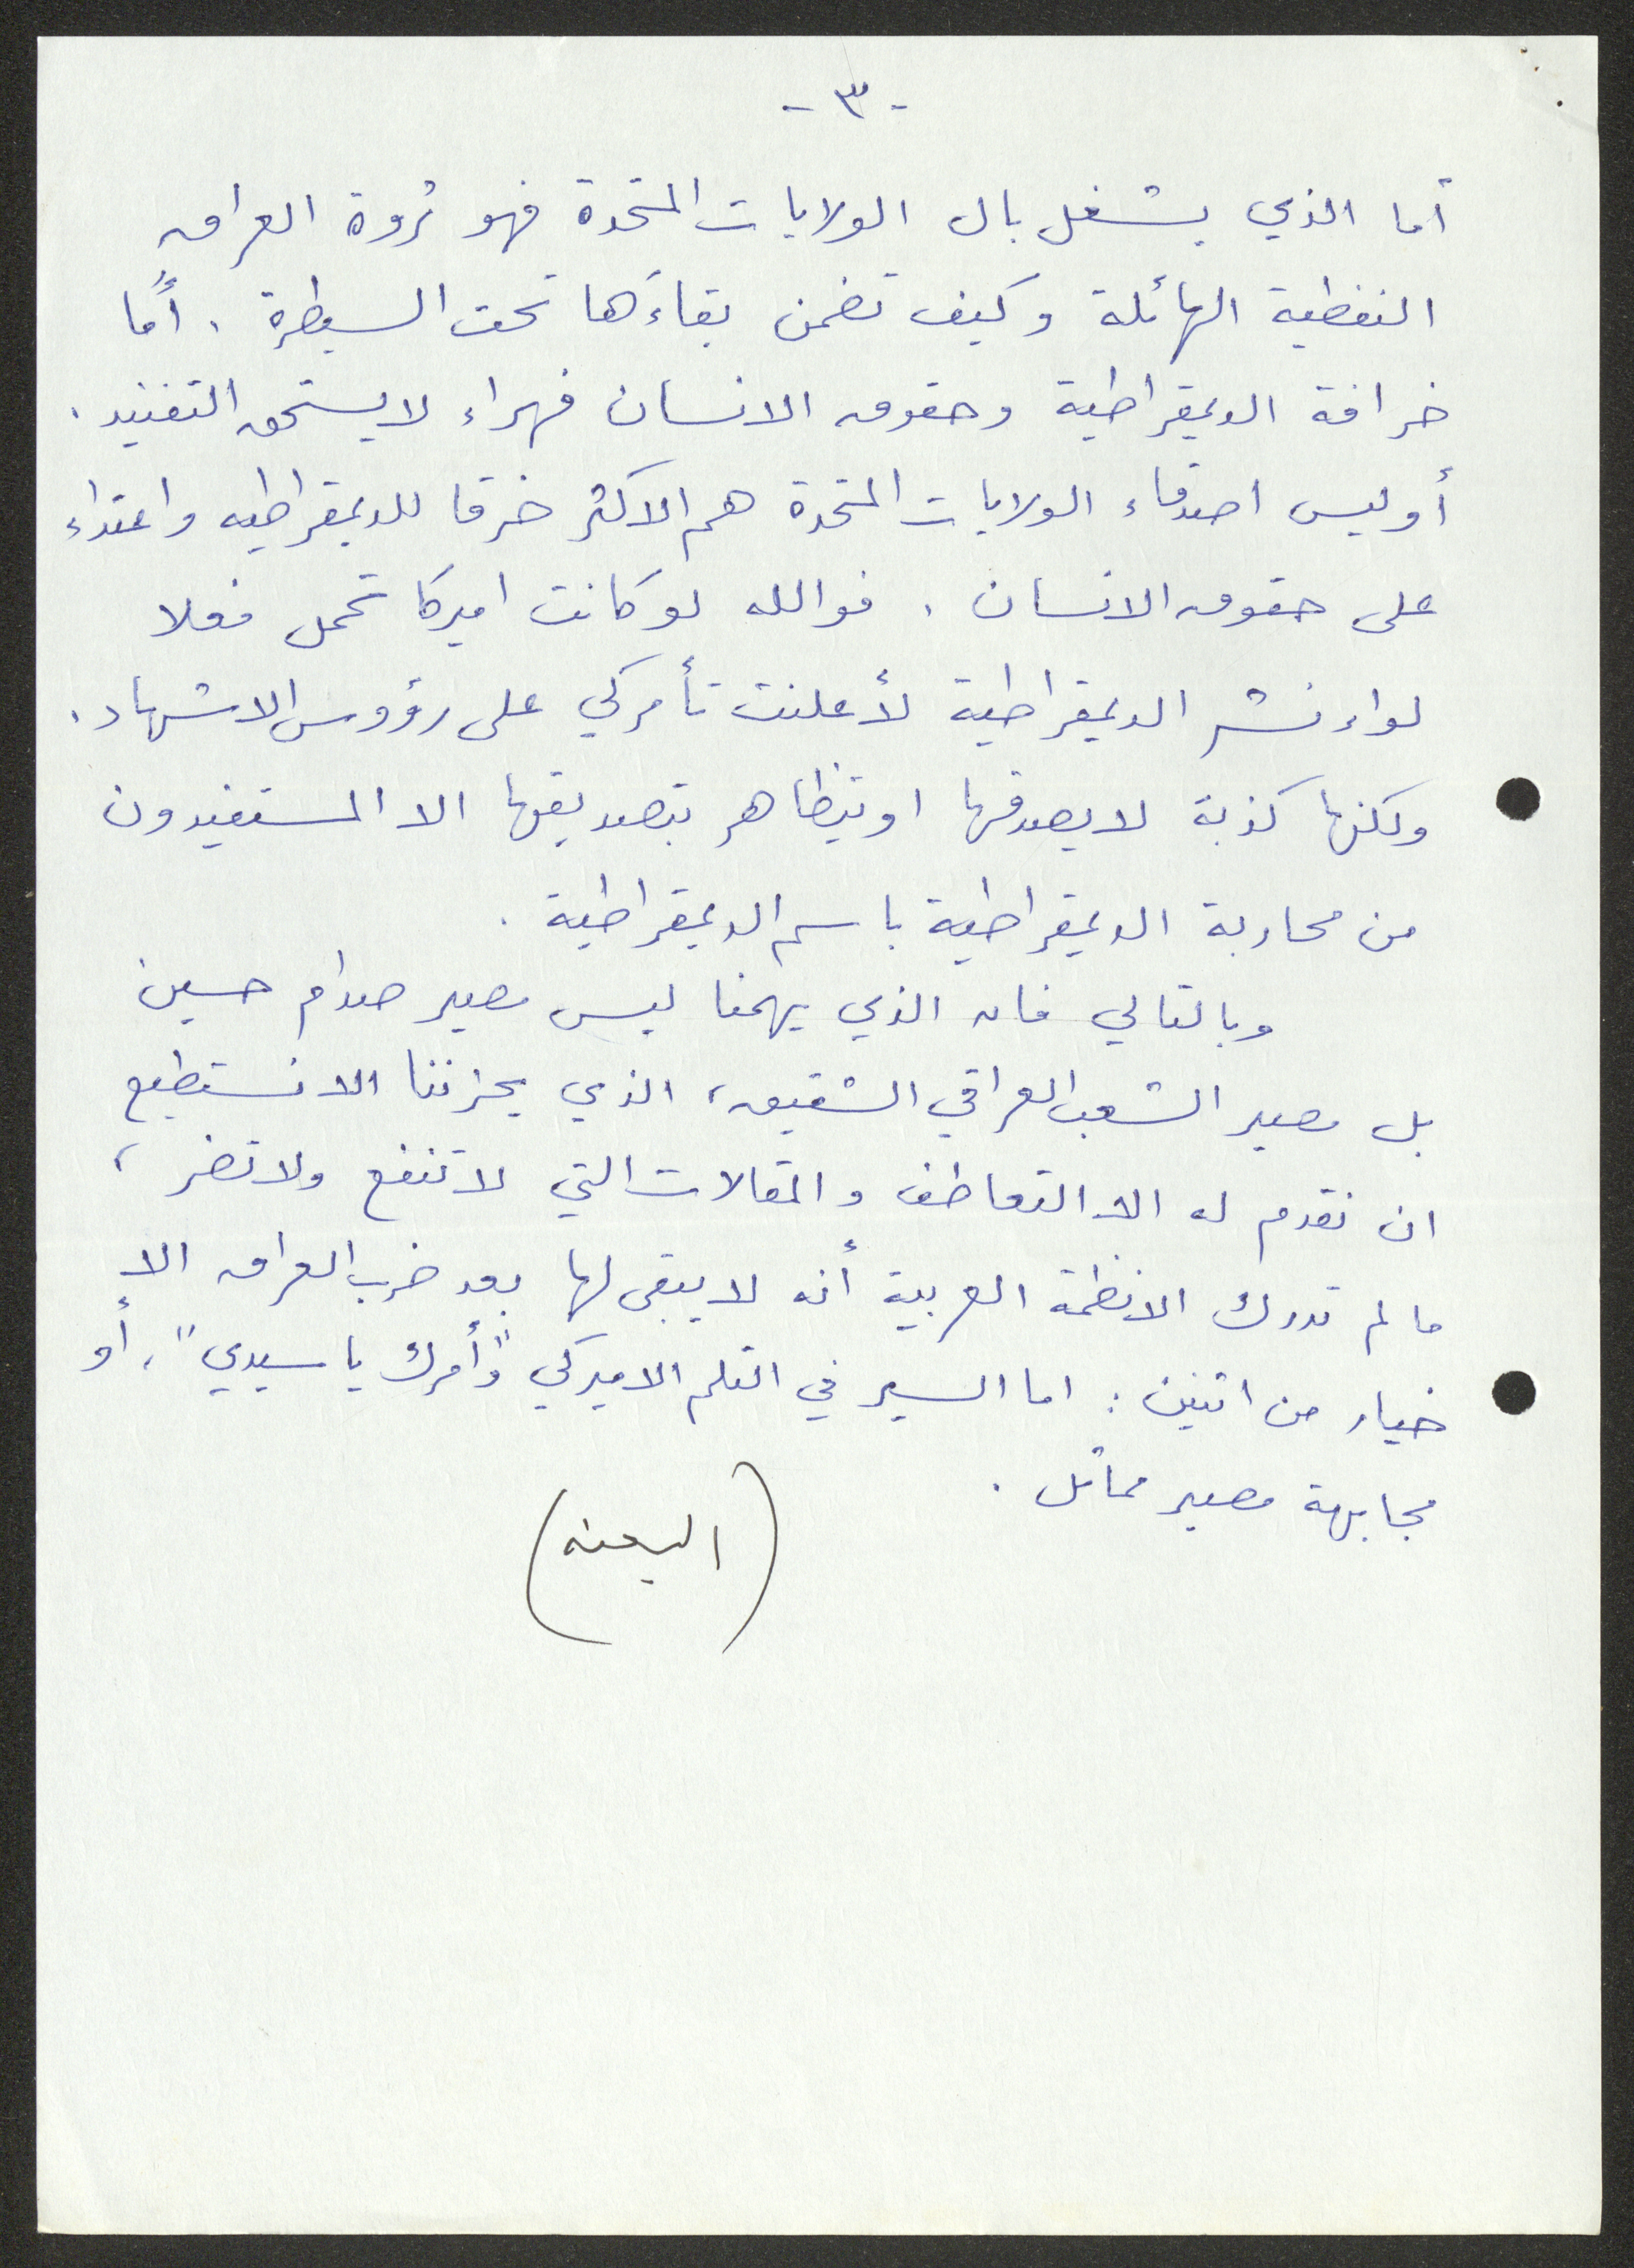 - ٣ -
أما الذي يشغل بال الولايات المتحدة فهو ثروة العراق
النفطية الهائلة وكيف تضمن بقاءَها تحت السيطرة . أمّا
خرافة الديمقراطية وحقوق الانسان فهراء لا يستحق التفنيد .
أوليس اصدقاء الولايات المتحدة هم الاكثر خرقا للديمقراطيه واعتداء
على حقوق الانسان . فوالله لو كانت اميركا تحمل فعلا
لواء نشر الديمقراطية لأعلنت تأمركي على رؤوس الاشهاد .
ولكنها كذبة لا يصدقها او يتظاهر بتصديقها الا المستفيدون
من محاربة الديمقراطية باسم الديمقراطية .
وبالتالي فان الذي يهمنا ليس مصير صدام حسين
بل مصير الشعب العراقي الشقيق، الذي يحزننا الا نستطيع
ان نقدم له الا التعاطف والمقالات التي لا تنفع ولا تضر ،
ما لم تدرك الانظمة العربية أنه لا يبقى لها بعد ضرب العراق الا
خيار من اثنين : اما السير في التلم الاميركي "وأمرك يا سيدي" ، أو
مجابهة مصير مماثل .